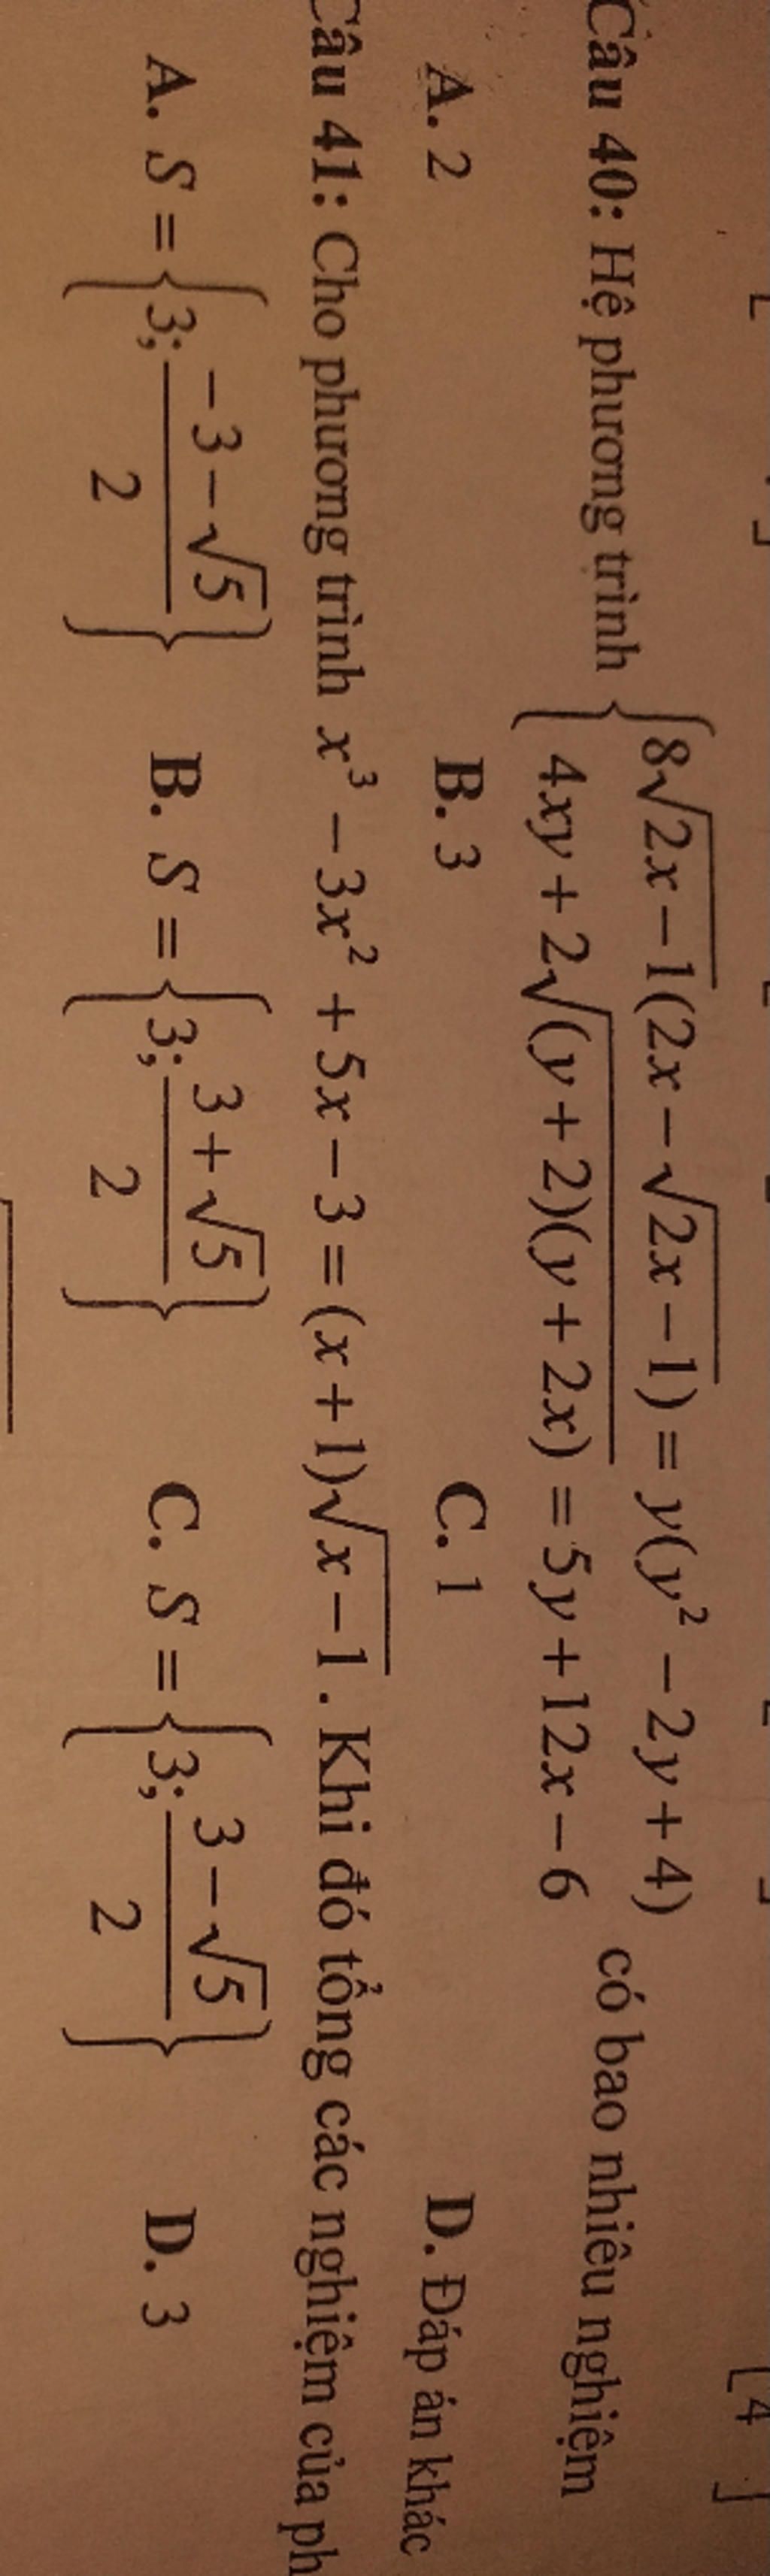 Câu 40: Hệ phương trình { 8√(2x−1)(2x − √(2x−1)) = y(y² − 2y + 4)
4xy + 2√((y + 2)(y + 2x)) = 5y + 12x − 6 có bao nhiêu nghiệm
A. 2 B. 3 C. 1 D. Đáp án khác
Câu 41: Cho phương trình x³ − 3x² + 5x − 3 = (x + 1)√(x − 1). Khi đó tổng các nghiệm của ph
A. S = {3; (−3 − √5)/2} B. S = {3; (3 + √5)/2} C. S = {3; (3 − √5)/2} D. 3